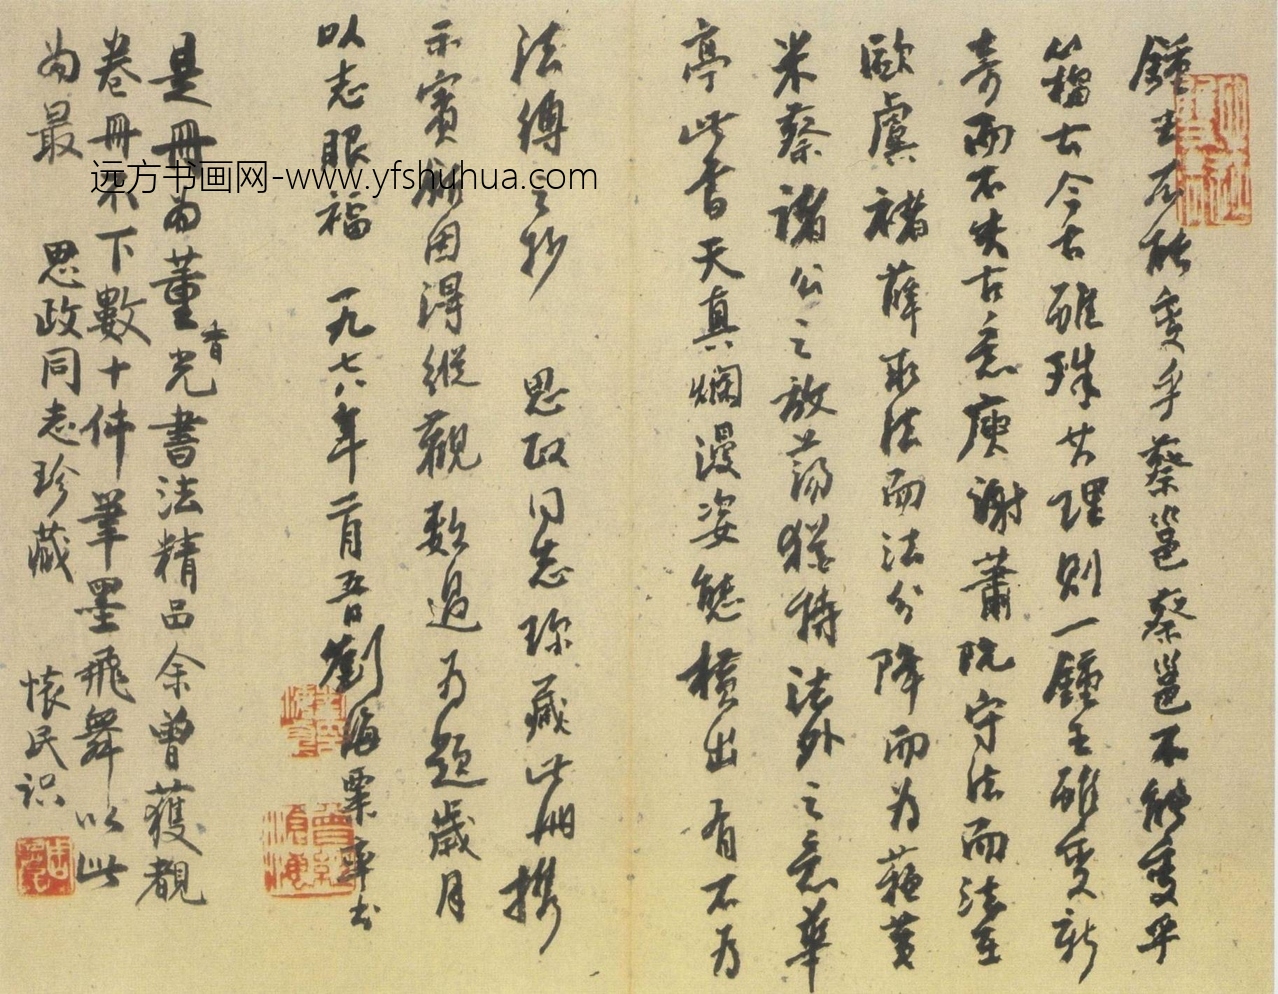 鍾王不能變乎蔡邕蔡邕不能變乎
籀古今古雖殊其理則一鍾王雖變新
奇而不失古意庾謝蕭阮守法而法在
歐虞褚薛取法而法分降而為蘇黃
米蔡諸公之放蕩猶持法外之意華
亭此書天真爛漫姿態橫出有不為
法縛之妙 思政同志珍藏此册携
示賓獅因得縱觀數過為題歲月
以志眼福 一九七八年二月五日劉海粟率書
是冊為董香光書法精品余曾獲觀
卷冊不下數十件筆墨飛舞以此
為最 思政同志珍藏 懷民识
远方书画网-www.yfshuhua.com